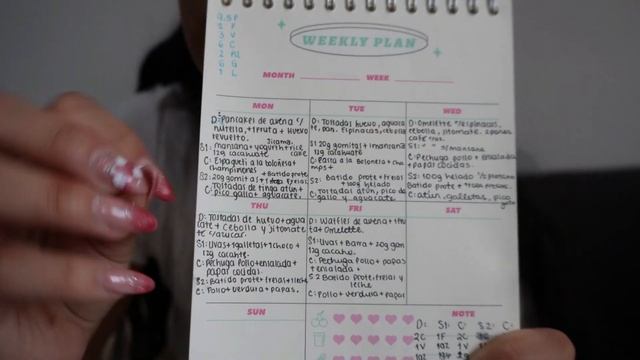 9.5 P
2 F
3 V
6 C
2 AL
6 G
1 L
WEEKLY PLAN
MONTH WEEK
MON
D: Pancakes de avena c/
nutella, + fruta + Huevo
revuelto.
S1: manzana + yogurth + rice
12g cacahuate cake
C: Espagueti a la boloñesa +
champiñones
S2: 20g gomitas + Batido prote fresas
Tostadas de tinga atún +
pico gallo + aguacate.
TUE
D: Tostadas huevo, aguaca
te, pan, espinacas, cebolla
S1: 20g gomitas + 1 manzana
12g cacahuate
C: Pasta a la Boloñesa + cha
mps +
S2: Batido prote + fresas
+ 100g helado
C: Tostadas atún, pico de
gallo y aguacate
WED
D: Omelette c/espinacas,
cebolla, jitomate. 2 panes
café
S1: " " 1/2 manzana
C: Pechuga pollo + ensalada
+ papas cocidas.
S2: 100g helado 1/2 manzana
Batido prote + fresa
C: atún, galletas, pico
gallo
THU
D: Tostadas de huevo + agua
cate + Cebolla y Jitomate
te s/azucar.
S1: Uvas + 1 galletas + 1 choco +
12g cacahte.
C: Pechuga Pollo + ensalada +
papas cocidas.
S2: Batido prote + fresas + leche
C: Pollo + verdura + papas.
FRI
D: Waffles de avena + fru
ta + Omelette.
S1: Uvas + Barra + 20g gom
12g cacahte.
C: Pechuga Pollo + papas
+ ensalada +
S2 Batido prote, fresas y
leche
C: Pollo + verdura + papas
SAT
SUN
NOTE
D: S1: C: S2: C:
2C 1F 2C
1V 10Z 1V